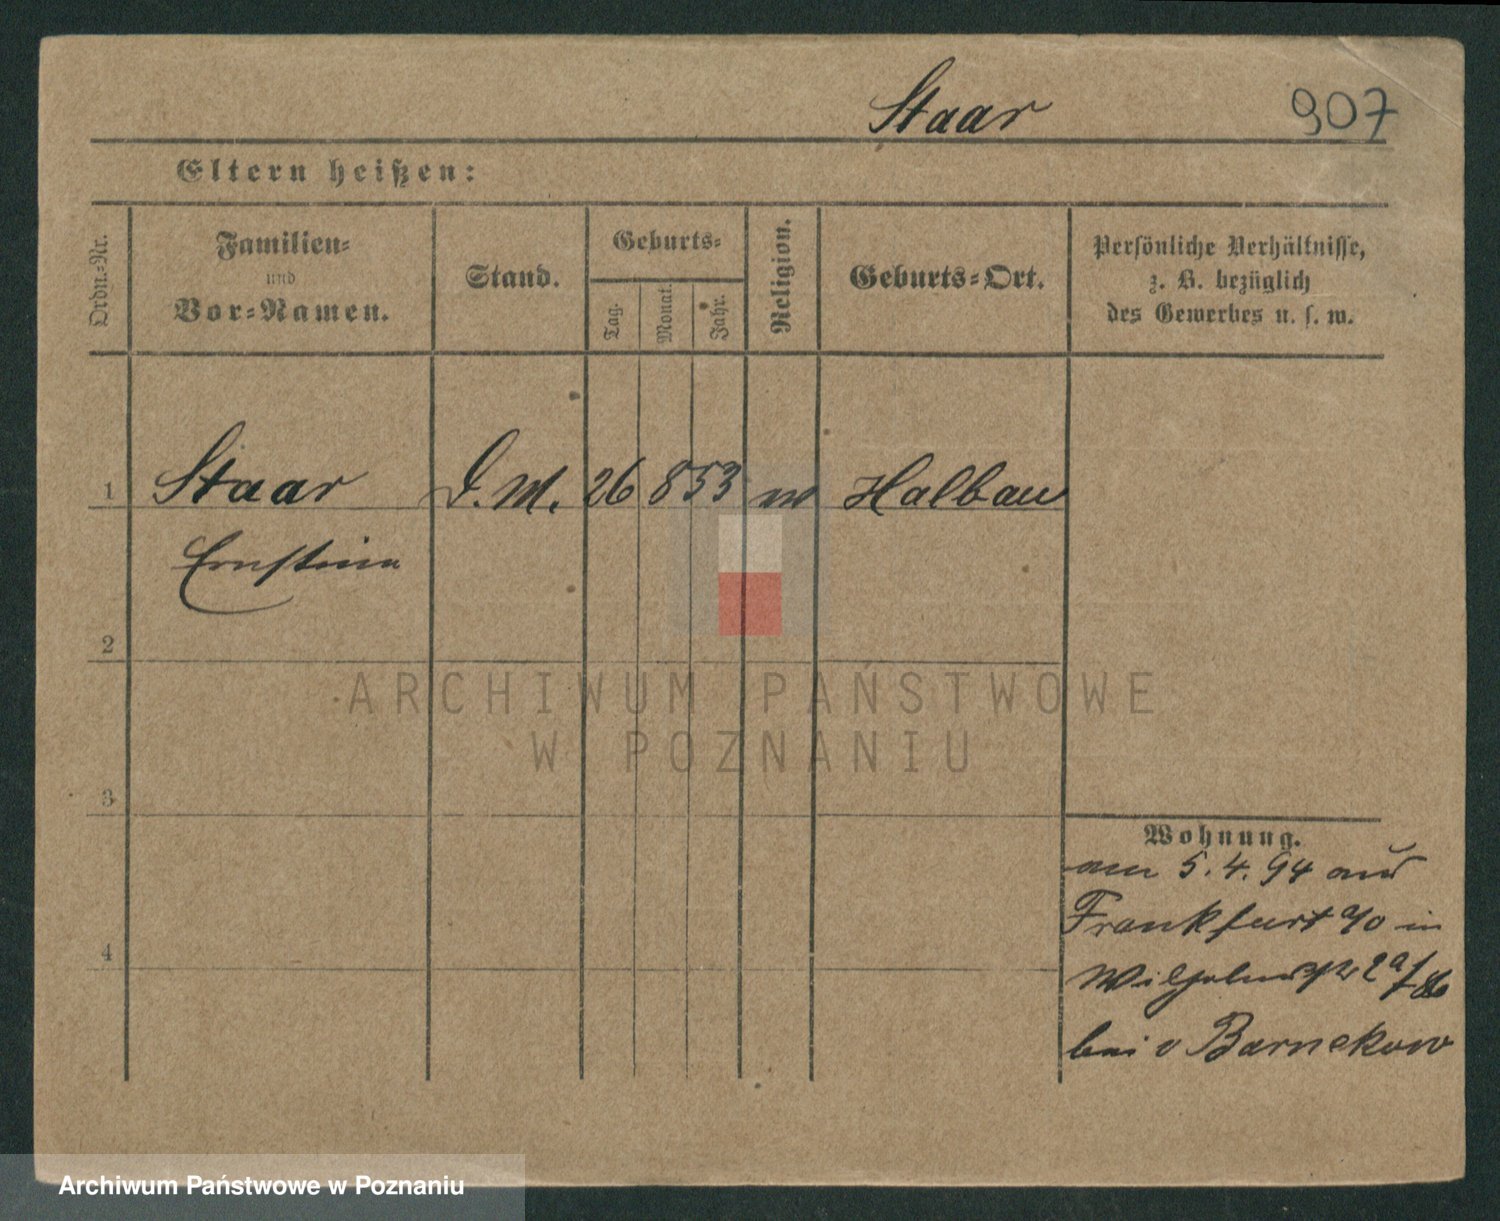 Staar 907
Eltern heißen:
Ordn.-Nr.
Familien-
und
Vor-Namen.
Stand.
Geburts-
Tag.
Monat.
Jahr.
Religion.
Geburts-Ort.
Persönliche Verhältnisse,
z. B. bezüglich
des Gewerbes u. s. w.
1 Staar D. M. 26 8 53 w Halbau
Ernstine
2
3
4
Wohnung.
am 5. 4. 94 aus
Frankfurt a/O in
Wilhelmstr 2a
bei v Barnekow
ARCHIWUM PAŃSTWOWE
W POZNANIU
Archiwum Państwowe w Poznaniu